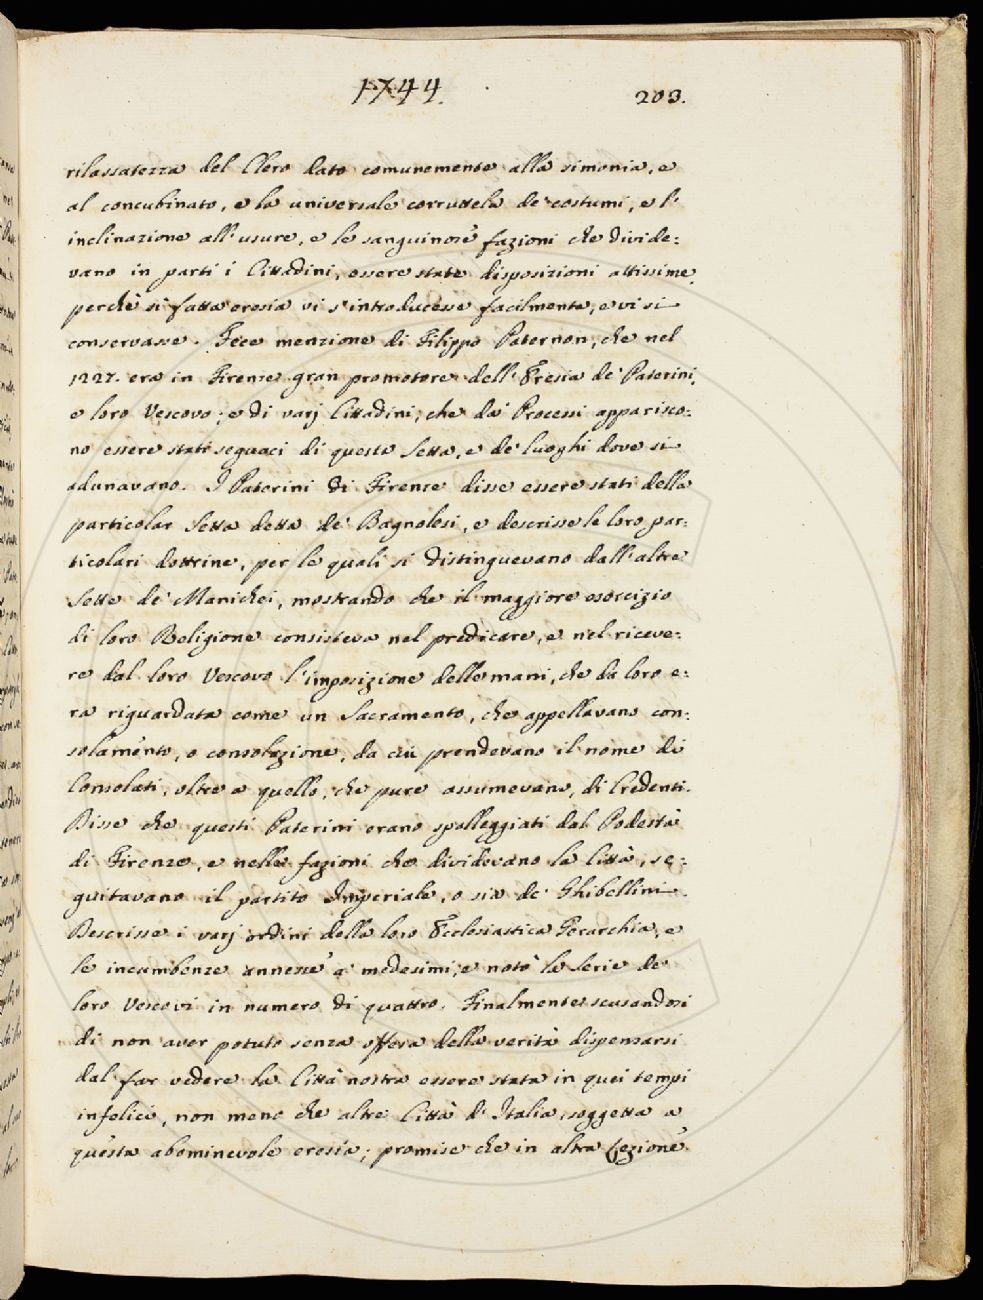 1744.
203.
rilassatezza del Clero dato comunemente alla simonia, e
al concubinato, e la universale corruttela de' costumi, e l'
inclinazione all'usure, e le sanguinose fazioni che divide=
vano in parti i Cittadini, essere state disposizioni attissime
perchè sì fatta eresia vi s'introducesse facilmente, e vi si
conservasse. Fece menzione di Filippo Paternon, che nel
1227. era in Firenze gran promotore dell'Eresia de' Paterini,
e loro Vescovo; e di varj Cittadini, che da' Processi apparisco=
no essere stati seguaci di questa Setta, e de' luoghi dove si
adunavano. I Paterini di Firenze disse essere stati della
particolar Setta detta de' Bagnolesi, e descrisse le loro par=
ticolari dottrine, per le quali si distinguevano dall'altre
Sette de' Manichei, mostrando che il maggiore esercizio
di loro Religione consisteva nel predicare, e nel riceve=
re dal loro Vescovo l'imposizione delle mani, che da loro e=
ra riguardata come un Sacramento, che appellavano con=
solamento, o consolazione, da cui prendevano il nome di
Consolati, oltre a quello, che pure assumevano, di Credenti.
Disse che questi Paterini erano spalleggiati dal Podestà
di Firenze, e nelle fazioni che dividevano la Città, se=
guitavano il partito Imperiale, o sia de' Ghibellini.
Descrisse i varj ordini della loro Ecclesiastica Gerarchia, e
le incumbenze annesse a' medesimi, e notò la serie de'
loro Vescovi in numero di quattro. Finalmente scusandosi
di non aver potuto senza offesa della verità dispensarsi
dal far vedere la Città nostra essere stata in quei tempi
infelici, non meno che altre Città d'Italia, soggetta a
questa abominevole eresia; promise che in altra Lezione